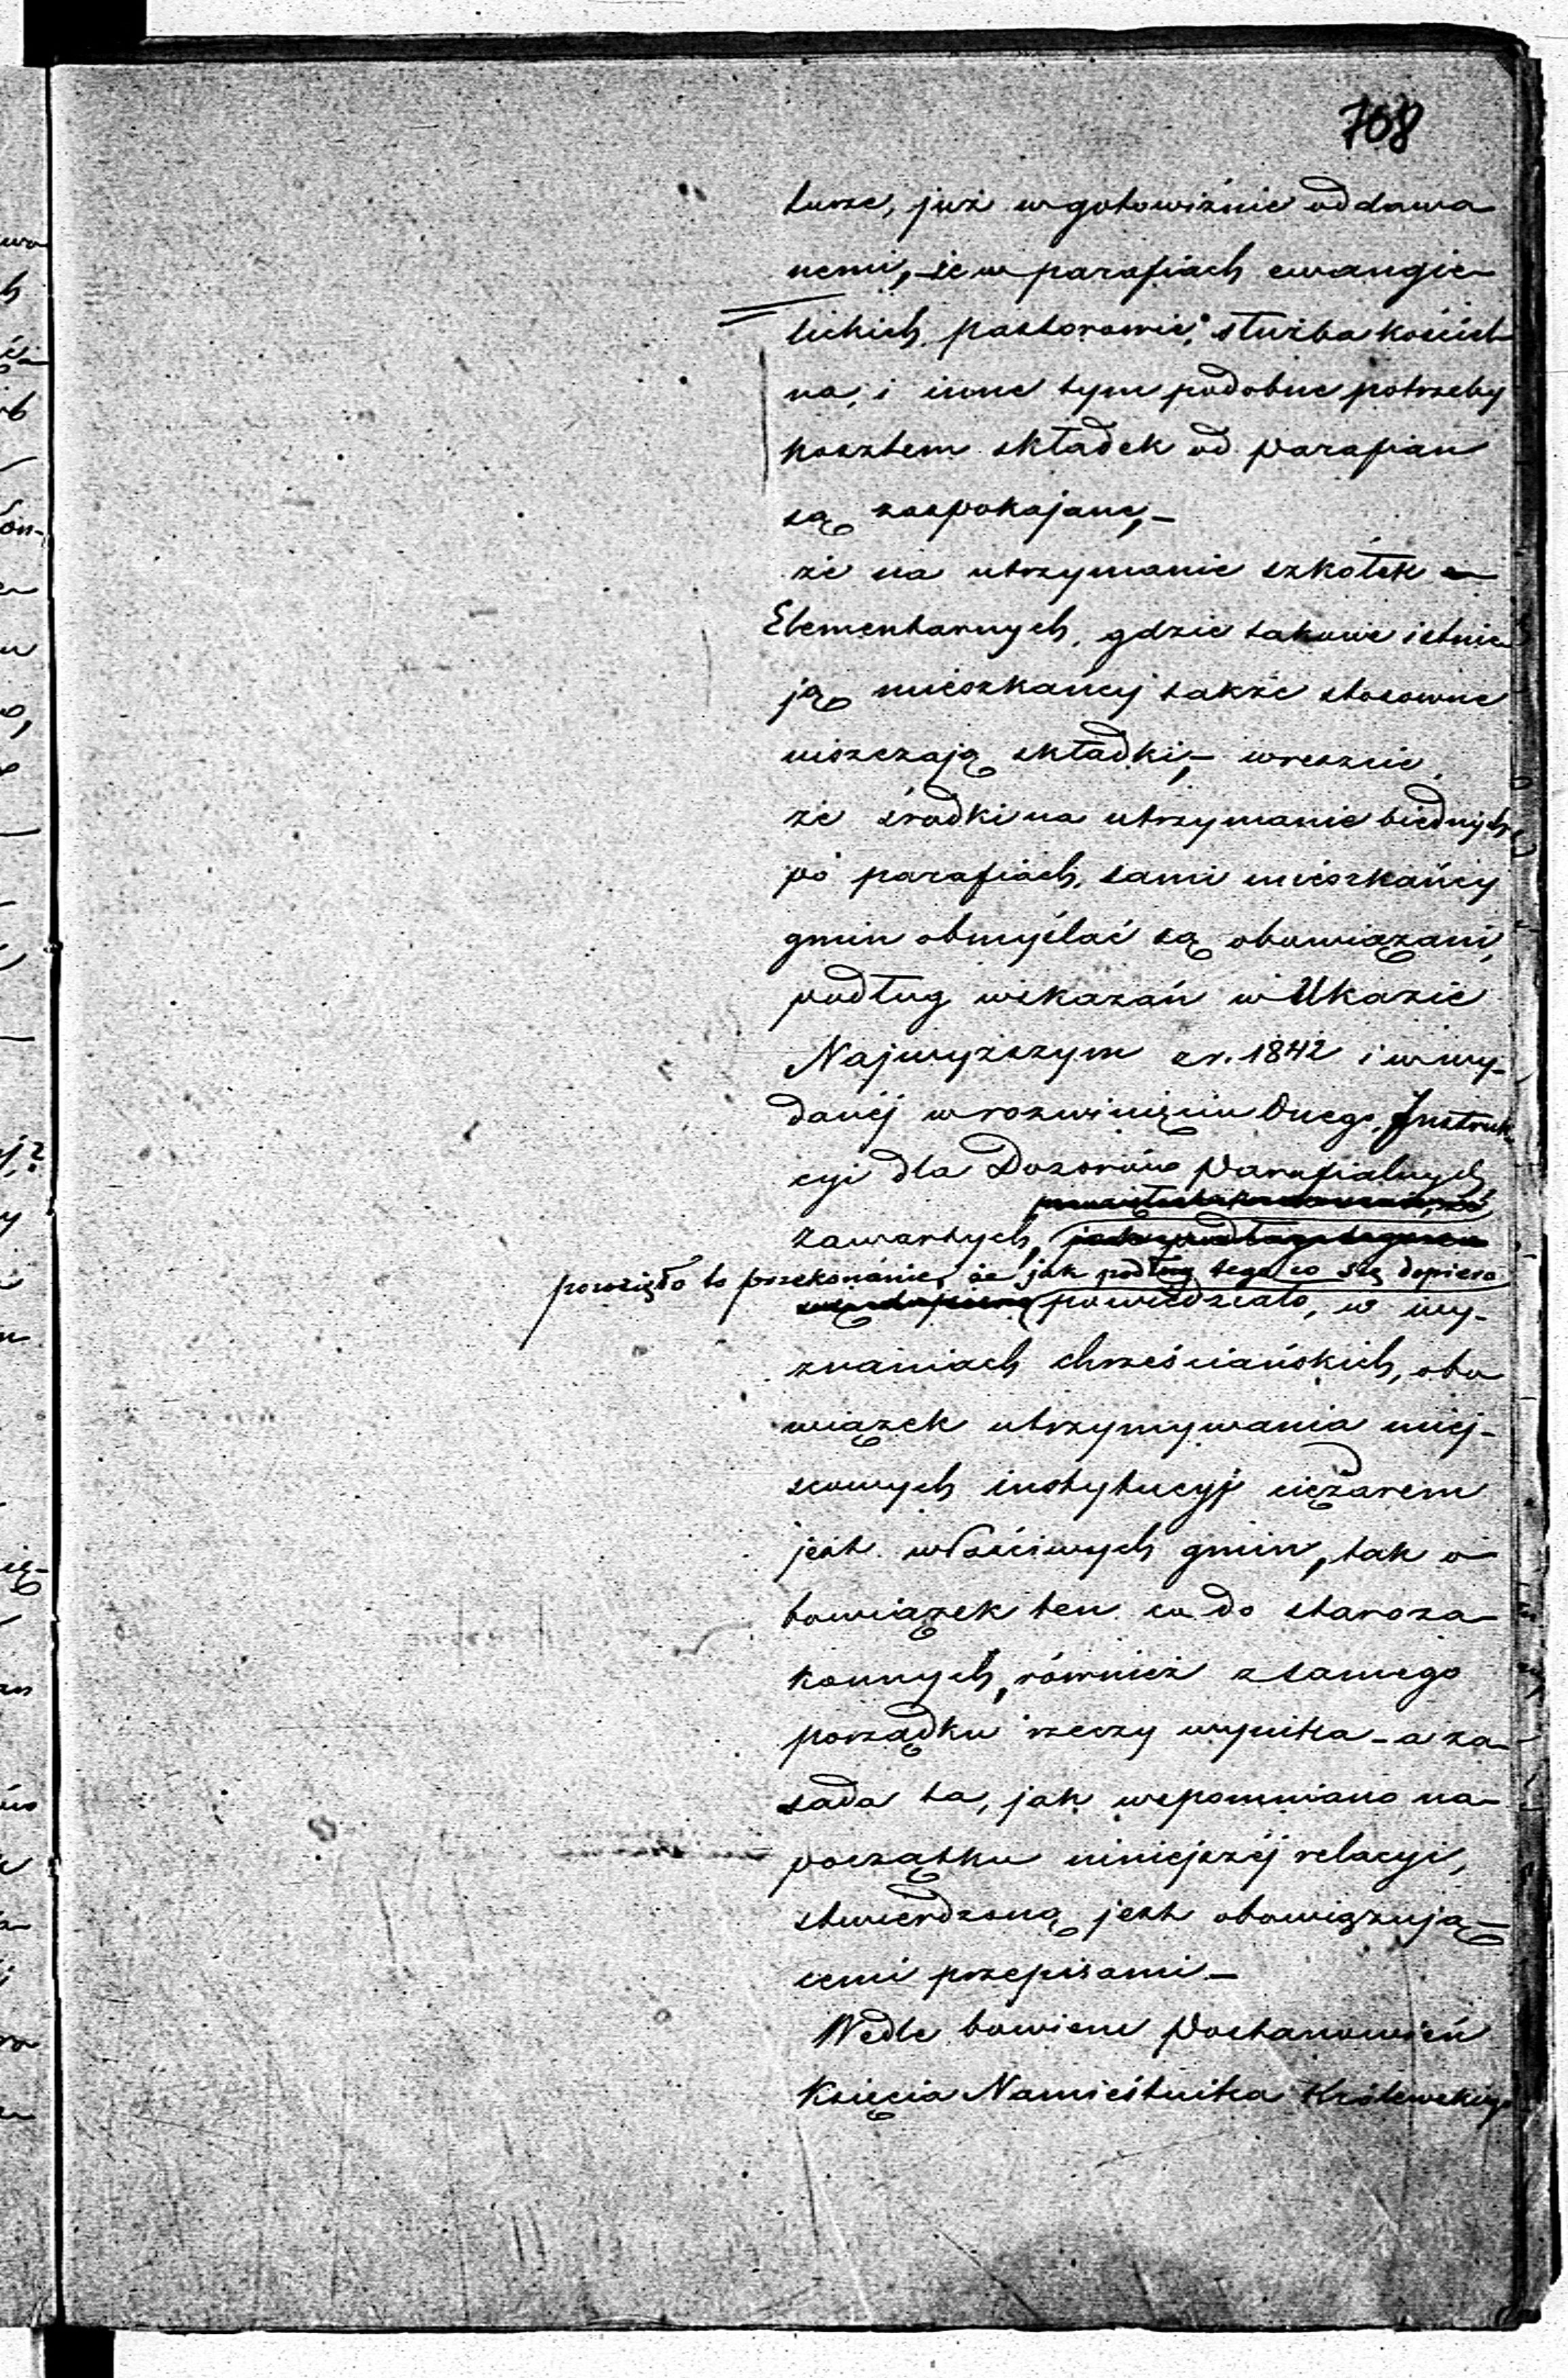 708
turze, już w gotowiźnie oddawa
nemi, że w parafiach ewangie
lickich, pastorowie, służba kościel
na, i inne tym podobne potrzeby
kosztem składek od parafian
są zaspokajane,-
że na utrzymanie szkółek
Elementarnych, gdzie takowe istnie
ją mieszkańcy także stosowne
uiszczają składki,- wreszcie
że środki na utrzymanie biednych
po parafiach, sami mieszkańcy
gmin obmyślać są obowiązani,
podług wskazań w Ukazie
Najwyższym z r. 1842 i w wy-
danéj w rozwinięciu Onego, Instruk
cyi dla Dozorów Parafialnych
zawartych,
powzięło to przekonanie, że jak podług tego co się dopiero
powiedziało, w wy-
znaniach chrześciańskich, obo
wiązek utrzymywania miej-
scowych instytucyj ciężarem
jest właściwych gmin, tak o-
bowiązek ten co do staroza-
konnych, również z samego
porządku rzeczy wynika - a za-
sada ta, jak wspomniano na-
początku niniejszéj relacyi,
stwierdzoną jest obowiązują-
cemi przepisami -
Wedle bowiem Postanowień
Księcia Namiestnika Królewskiego